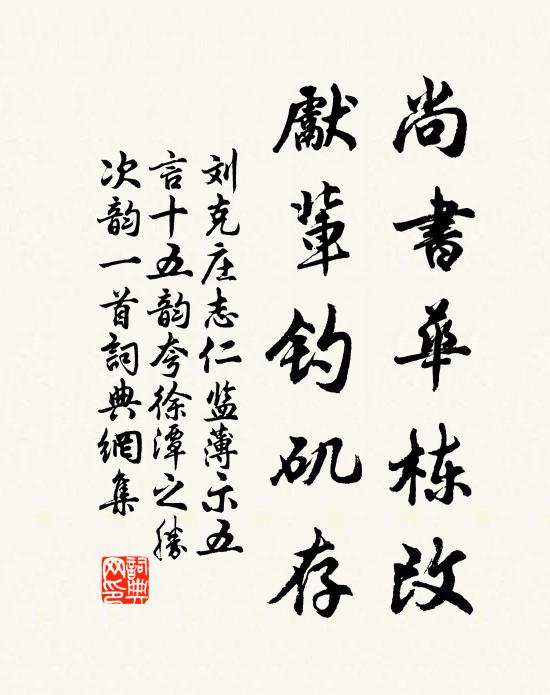 尚書華栋改
獻輩钓矶存
刘克庄志仁监薄示五
言十五韵夸徐潭之勝
次韵一首詞典網集
詞典
网印